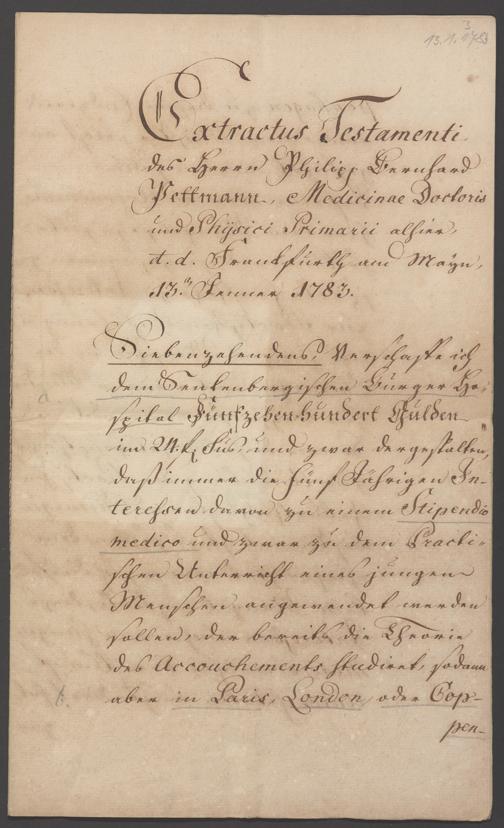 13.1.1783
3
Extractus Testamenti
des Herrn Philipp Bernhard
Pettmann, Medicinae Doctoris
und Physici Primarii alhier,
d. d. Franckfurth am Mayn,
13.n Jenner 1783.
Siebenzehendens, Verschaffe ich
dem Senkenbergischen Burger Ho-
spital Fünfzehen hundert Gulden
im 24.f. Fus, und zwar dergestalten,
daß immer die fünf Jährigen In-
teressen davon zu einem Stipendio
medico und zwar zu dem Practi-
schen Unterricht eines jungen
Menschen angewendet werden
sollen, der bereits die Theorie
des Accouchements studiret, sodann
aber in Paris, London, oder Cop-
pen-